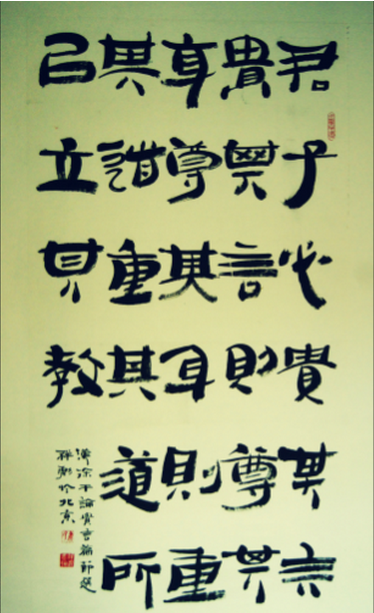 君子必貴其言
貴其言則尊其
身尊其身則重
其道重其道所
㠯立其教
漢徐干論貴言篇節選
於北京